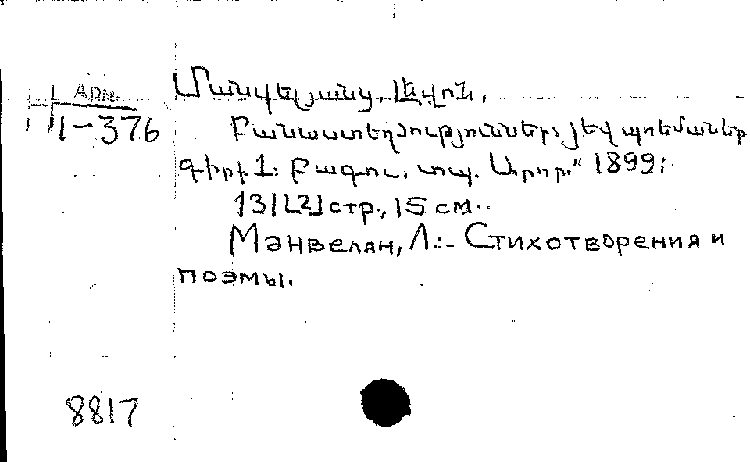 Арм.
1-376
Մանվելյանց, Լևոն.
Բանաստեղծություններ յեվ պոեմաներ
գիրք 1: Բագու, տպ. Արոր.“ 1899:
131[2] стр., 15 см..
Манвелян, Л.:- Стихотворения и
поэмы.
8817